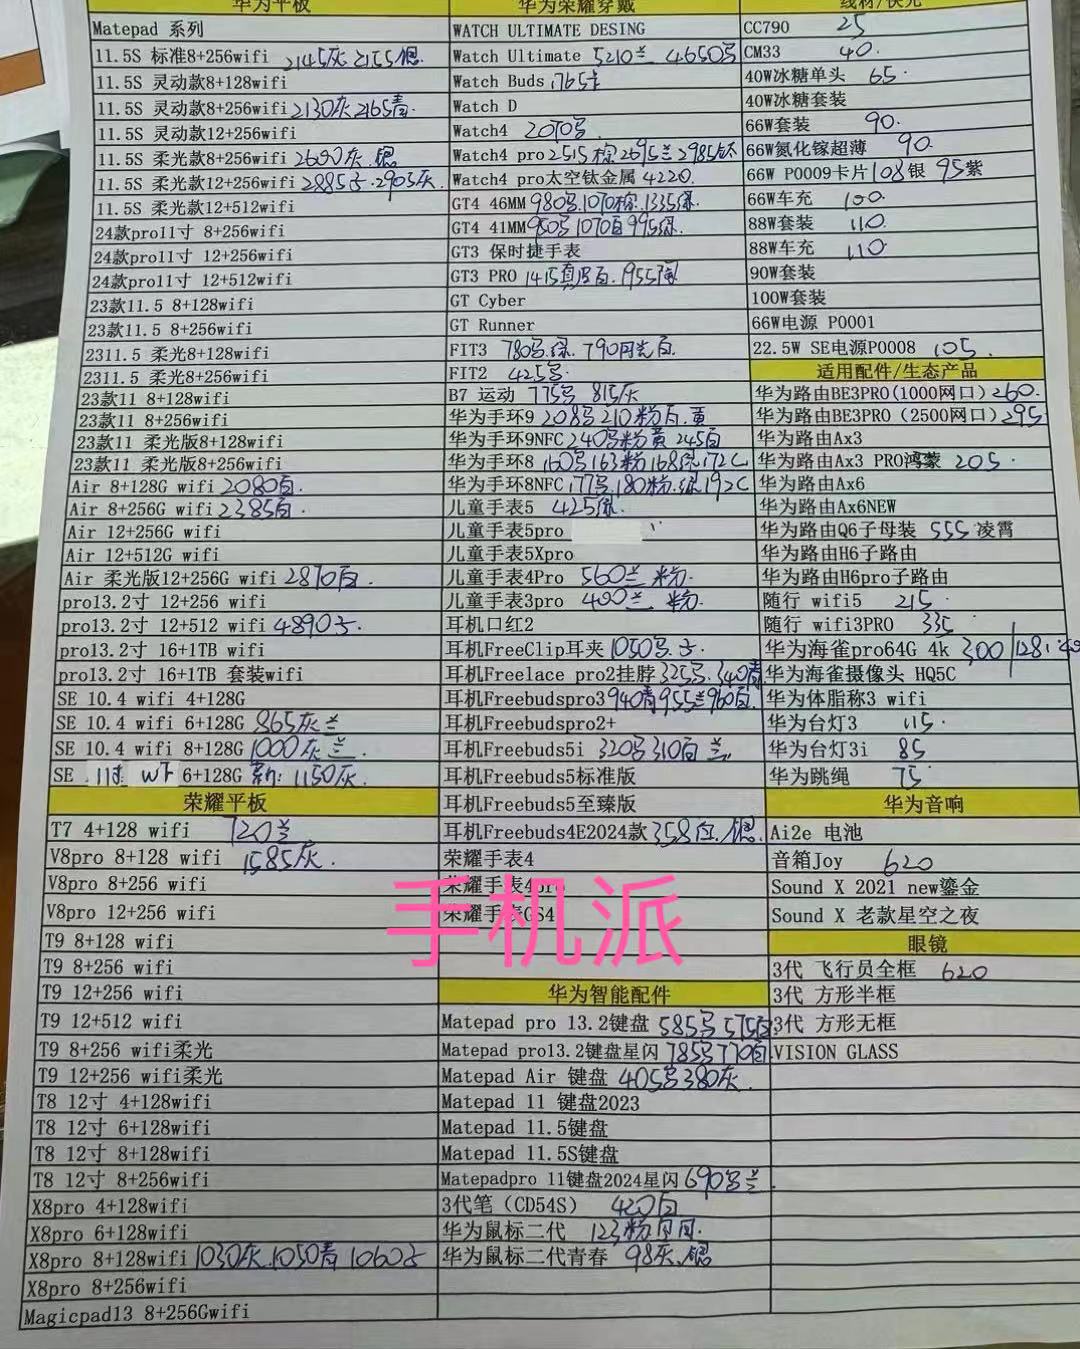 华为平板
Matepad 系列
11.5S 标准8+256wifi 2145灰 2155银.
11.5S 灵动款8+128wifi
11.5S 灵动款8+256wifi 2130灰 2165青.
11.5S 灵动款12+256wifi
11.5S 柔光款8+256wifi 2600灰.银
11.5S 柔光款12+256wifi 2885 2905灰.
11.5S 柔光款12+512wifi
24款pro11寸 8+256wifi
24款pro11寸 12+256wifi
24款pro11寸 12+512wifi
23款11.5 8+128wifi
23款11.5 8+256wifi
2311.5 柔光8+128wifi
2311.5 柔光8+256wifi
23款11 8+128wifi
23款11 8+256wifi
23款11 柔光版8+128wifi
23款11 柔光版8+256wifi
Air 8+128G wifi 2080白.
Air 8+256G wifi 2385白.
Air 12+256G wifi
Air 12+512G wifi
Air 柔光版12+256G wifi 2870白.
pro13.2寸 12+256 wifi
pro13.2寸 12+512 wifi 4890
pro13.2寸 16+1TB wifi
pro13.2寸 16+1TB 套装wifi
SE 10.4 wifi 4+128G
SE 10.4 wifi 6+128G 865灰兰
SE 10.4 wifi 8+128G 1000灰兰.
SE 11寸 wf 6+128G 新: 1150灰.
荣耀平板
T7 4+128 wifi 720兰
V8pro 8+128 wifi 1585灰.
V8pro 8+256 wifi
V8pro 12+256 wifi
T9 8+128 wifi
T9 8+256 wifi
T9 12+256 wifi
T9 12+512 wifi
T9 8+256 wifi柔光
T9 12+256 wifi柔光
T8 12寸 4+128wifi
T8 12寸 6+128wifi
T8 12寸 8+128wifi
T8 12寸 8+256wifi
X8pro 4+128wifi
X8pro 6+128wifi
X8pro 8+128wifi 1030灰.1050青 1060
X8pro 8+256wifi
Magicpad13 8+256Gwifi
华为荣耀穿戴
WATCH ULTIMATE DESING
Watch Ultimate 5210兰 4650
Watch Buds 1765
Watch D
Watch4 2070
Watch4 pro 2515棕 2695兰 2985钛
Watch4 pro太空钛金属 4220.
GT4 46MM 980 1070棕.1335绿.
GT4 41MM 980 1070白 995绿.
GT3 保时捷手表
GT3 PRO 1415真皮白.1955
GT Cyber
GT Runner
FIT3 780 绿 790 白.
FIT2 425
B7 运动 775 815灰
华为手环9 208 210粉白.黄
华为手环9NFC 240 粉黄 245白
华为手环8 160 163粉 168绿 172C
华为手环8NFC 177 180粉.绿 192C
儿童手表5 425绿.
儿童手表5pro
儿童手表5Xpro
儿童手表4Pro 560兰 粉.
儿童手表3pro 400兰 粉.
耳机口红2
耳机FreeClip耳夹 1050
耳机Freelace pro2挂脖 325 340青
耳机Freebudspro3 940青 955兰 960白.
耳机Freebudspro2+
耳机Freebuds5i 320 310白 兰.
耳机Freebuds5标准版
耳机Freebuds5至臻版
耳机Freebuds4E2024款 358白.银
荣耀手表4
荣耀手表4pro
荣耀手表GS4
手机派
华为智能配件
Matepad pro 13.2键盘 585 575白
Matepad pro13.2键盘星闪 785 770白
Matepad Air 键盘 405 380灰.
Matepad 11 键盘2023
Matepad 11.5键盘
Matepad 11.5S键盘
Matepadpro 11键盘2024星闪 690 兰
3代笔（CD54S） 420白
华为鼠标二代 123粉
华为鼠标二代青春 98灰.银
线材/快充
CC790 25
CM33 40.
40W冰糖单头 65.
40W冰糖套装
66W套装 90.
66W氮化镓超薄 90.
66W P0009卡片 108银 95紫
66W车充 100.
88W套装 110.
88W车充 110
90W套装
100W套装
66W电源 P0001
22.5W SE电源P0008 105.
适用配件/生态产品
华为路由BE3PRO(1000网口) 260.
华为路由BE3PRO（2500网口) 295
华为路由Ax3
华为路由Ax3 PRO鸿蒙 205.
华为路由Ax6
华为路由Ax6NEW
华为路由Q6子母装 555 凌霄
华为路由H6子路由
华为路由H6pro子路由
随行 wifi5 215.
随行 wifi3PRO 335
华为海雀pro64G 4k 300/128:
华为海雀摄像头 HQ5C
华为体脂称3 wifi
华为台灯3 115.
华为台灯3i 85
华为跳绳 75
华为音响
Ai2e 电池
音箱Joy 620
Sound X 2021 new鎏金
Sound X 老款星空之夜
眼镜
3代 飞行员全框 620
3代 方形半框
3代 方形无框
VISION GLASS